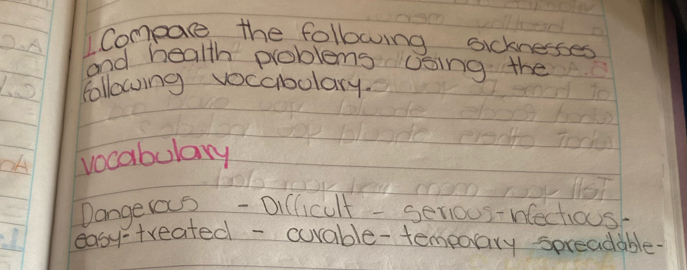 1. Compare the following sicknesses
and health problems using the
following vocabulary.
vocabulary
Dangerous - Difficult - serious-infectious-
easy-treated - curable-temporary-spreadable-